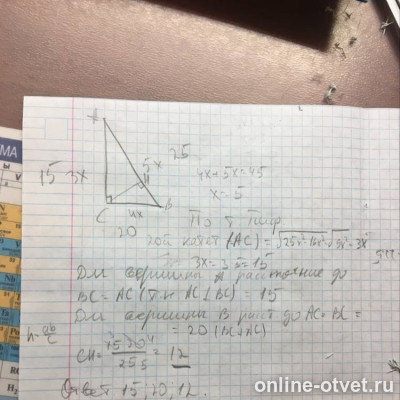 A
5x 25
H
15 3x
C 4x B
20
4x+5x=45
x=5
По т Пиф
2ой катет (AC) = √25x²-16x² = √9x² = 3x
3x=3·5=15
Для вершины A расстояние до
BC = AC (т.к AC⊥BC) = 15
Для вершины B раст до AC = BC =
= 20 (BC⊥AC)
h=ab/c
CH = 15·20/25 = 12
Ответ 15; 20; 12.
МА
online-otvet.ru